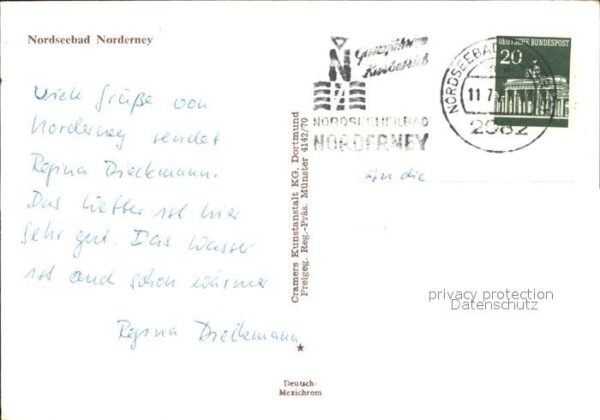 Nordseebad Norderney
Viele Grüße von
Norderney sendet
Regina Dieckmann.
Das Wetter ist hier
sehr gut. Das Wasser
ist auch schon wärmer
Regina Dieckmann
Cramers Kunstanstalt KG, Dortmund
Freigeg. Reg.-Präs. Münster 4142/70
Deutsch-
Mexichrom
Ganzjähriger
Kurbetrieb
N
NORDSEEHEILBAD
NORDERNEY
NORDSEEBAD
11.7.
2982
DEUTSCHE BUNDESPOST
20
An die
privacy protection
Datenschutz